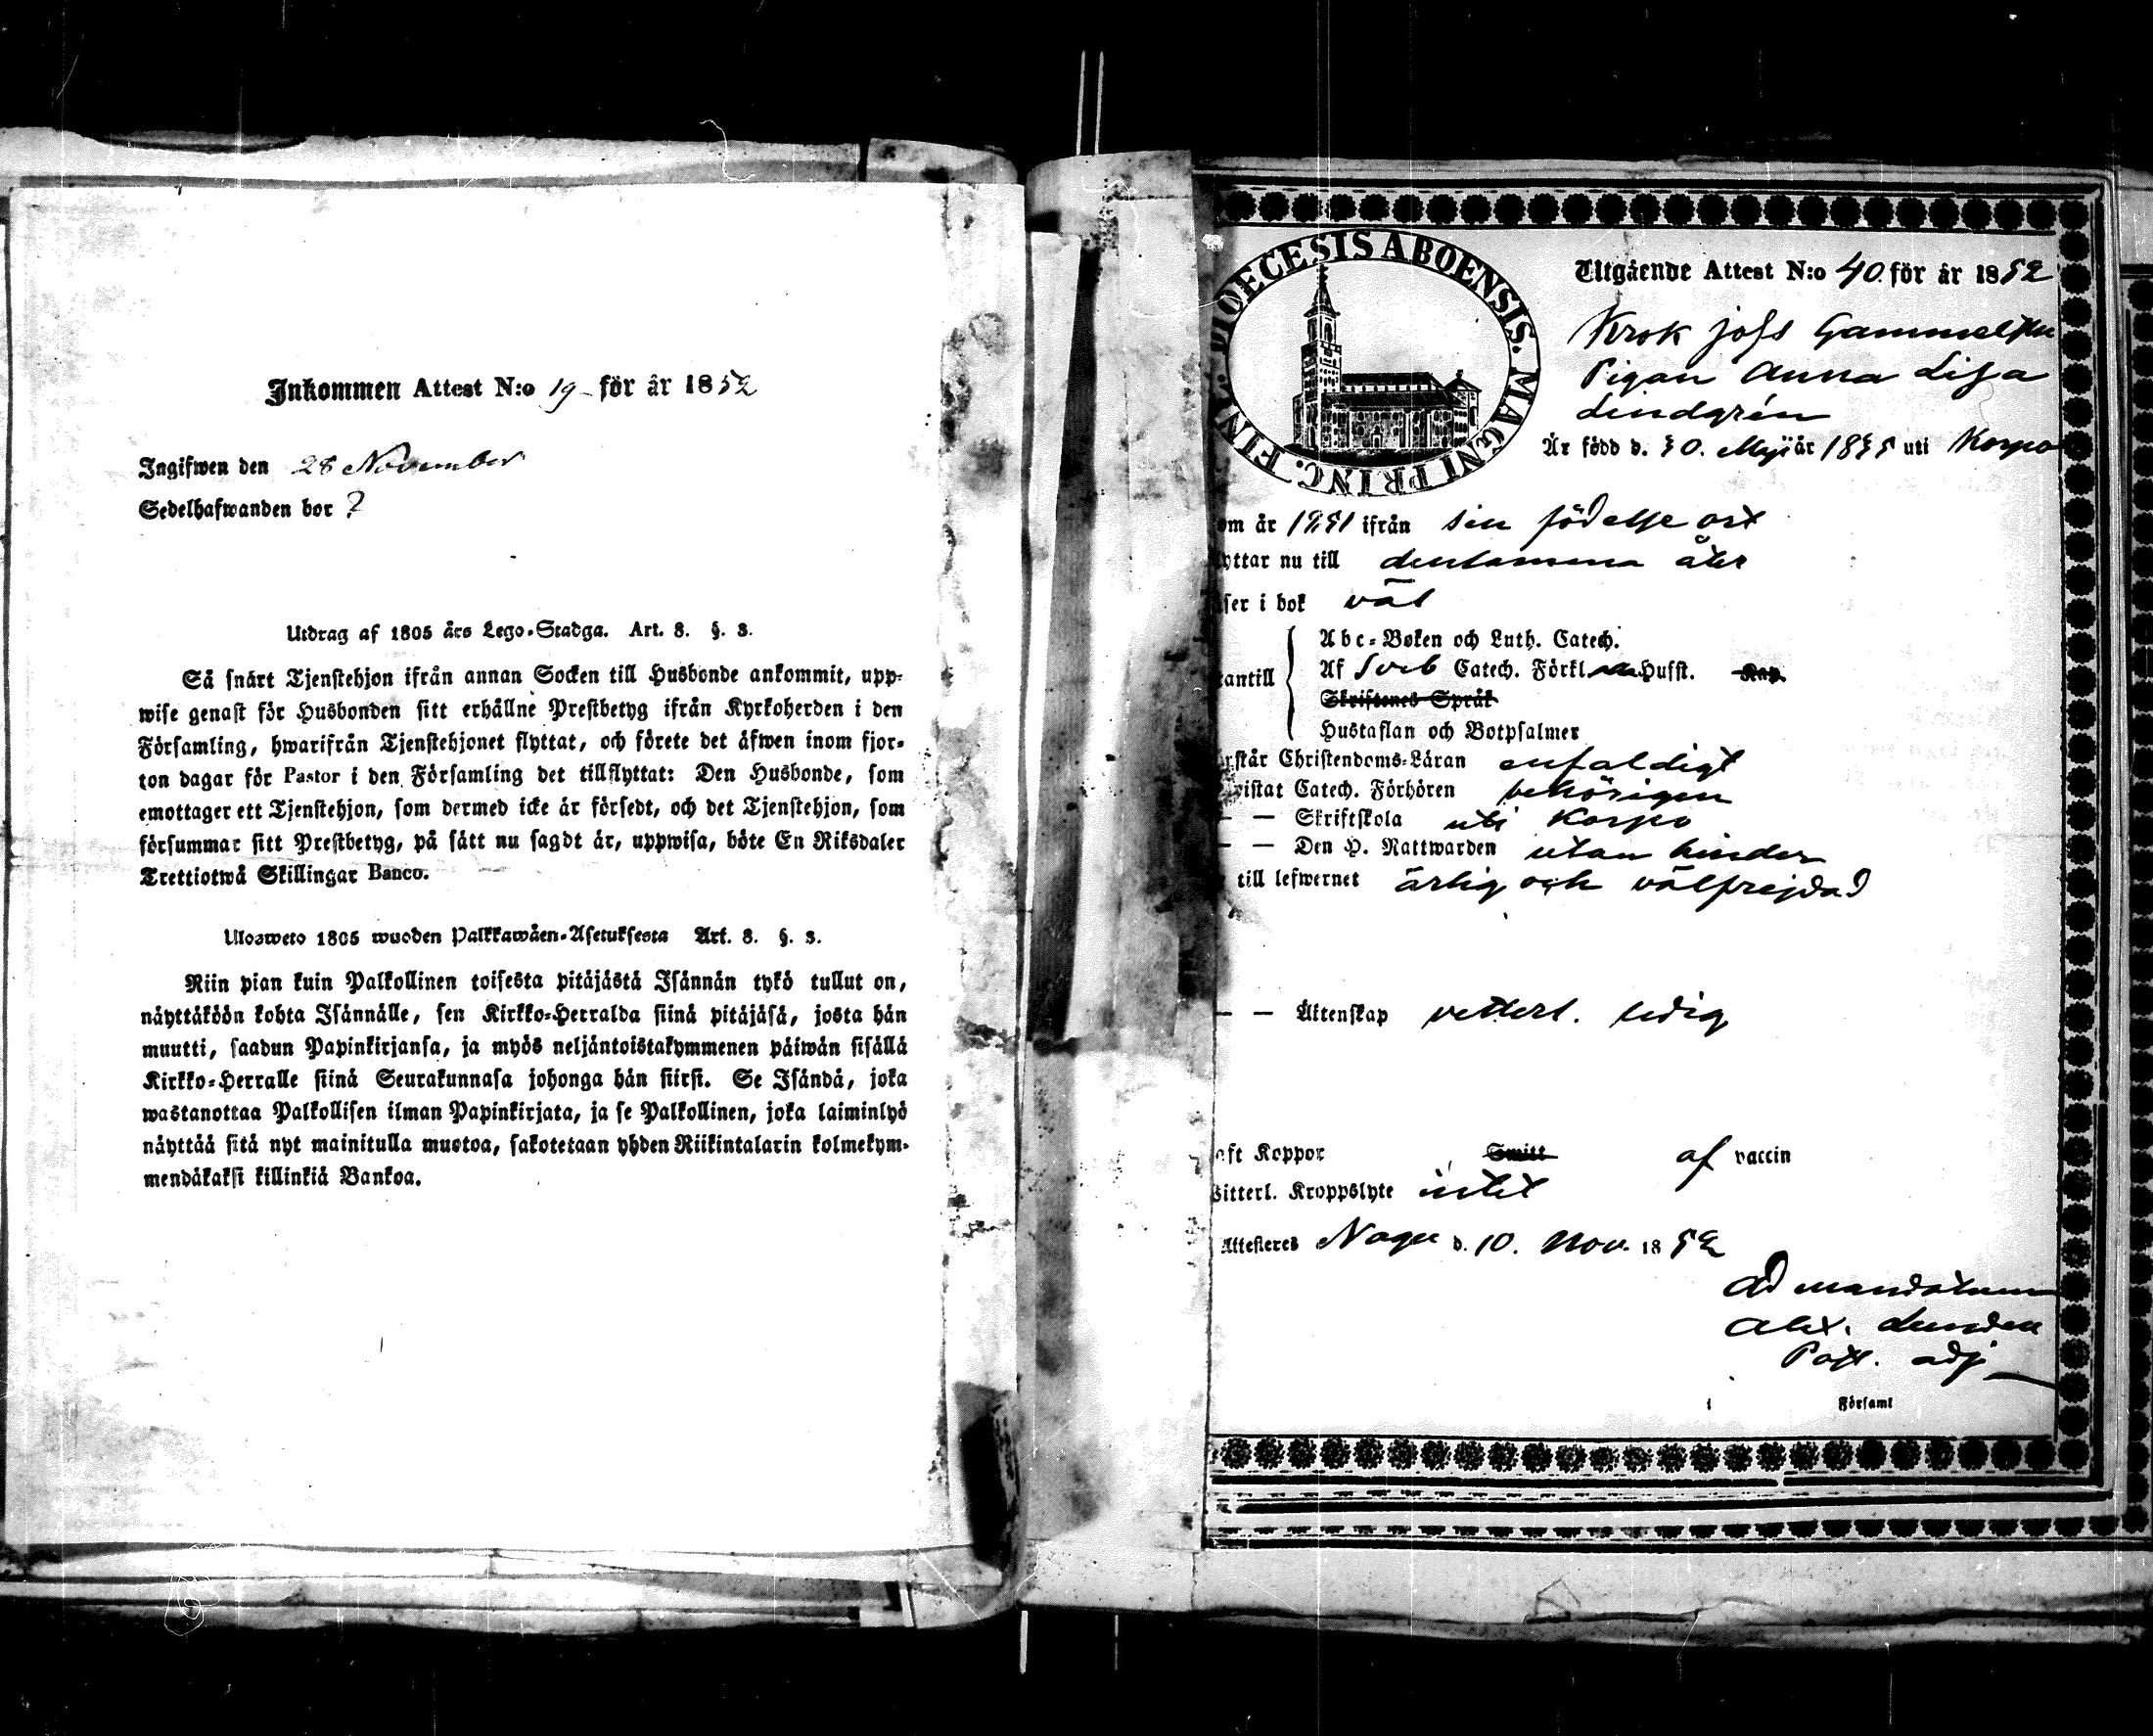 Inkommen Attest N:o 19 för år 1852
Ingifwen den 28 November
Sedelhafwanden bor ?
Utdrag af 1805 års Lego-Stadga. Art. 8. §. 3.
Så snart Tjenstehjon ifrån annan Socken till Husbonde ankommit, upp-
wise genast för Husbonden sitt erhållne Prestbetyg ifrån Kyrkoherden i den
Församling, hwarifrån Tjenstehjonet flyttat, och förete det äfwen inom fjor-
ton dagar för Pastor i den Församling det tillflyttat: Den Husbonde, som
emottager ett Tjenstehjon, som dermed icke är försedt, och det Tjenstehjon, som
försummar sitt Prestbetyg, på sätt nu sagdt är, uppwisa, böte En Riksdaler
Trettiotwå Skillingar Banco.
Ulosweto 1805 wuoden Palkkawäen-Asetuksesta Art. 8. §. 3.
Niin pian kuin Palkollinen toisesta pitäjästä Isännän tykö tullut on,
näyttäköön kohta Isännälle, sen Kirkko-Herralda siinä pitäjäsä, josta hän
muutti, saadun Papinkirjansa, ja myös neljäntoistakymmenen päiwän sisällä
Kirkko-Herralle siinä Seurakunnasa johonga hän siirst. Se Isändä, joka
wastanottaa Palkollisen ilman Papinkirjata, ja se Palkollinen, joka laiminlyö
näyttää sitä nyt mainitulla muotoa, sakotetaan yhden Riikintalarin kolmekym-
mendäkaksi killinkiä Bankoa.
DIOECESIS ABOENSIS. MAGNI PRINC. FINL.
Utgående Attest N:o 40 för år 1852
Krok
Pigan Anna Lisa
Lindgrén
Är född d. 30. Maji år 1835 uti Korpo
om år 1851 ifrån sin födelse ort
yttar nu till densamma åter
ser i bok väl
Abc-Boken och Luth. Catech.
antill Af Sveb Catech. Förkl Husst. Kap.
Skriftenes Språk
Hustaflan och Botpsalmer
rstår Christendoms-Läran enfaldigt
vistat Catech. Förhören behörigen
— — Skriftskola uti Korpo
— — Den H. Nattwarden utan hinder
till lefwernet ärlig och välfrejdad
— — Äktenskap vetterl. ledig
aft Koppor Smitt af vaccin
Witterl. Kroppslyte intet
Attesteres Nagu d. 10. Nov. 1852
Ad mandatum
Alex. Lunden
Past. adj
i Församl